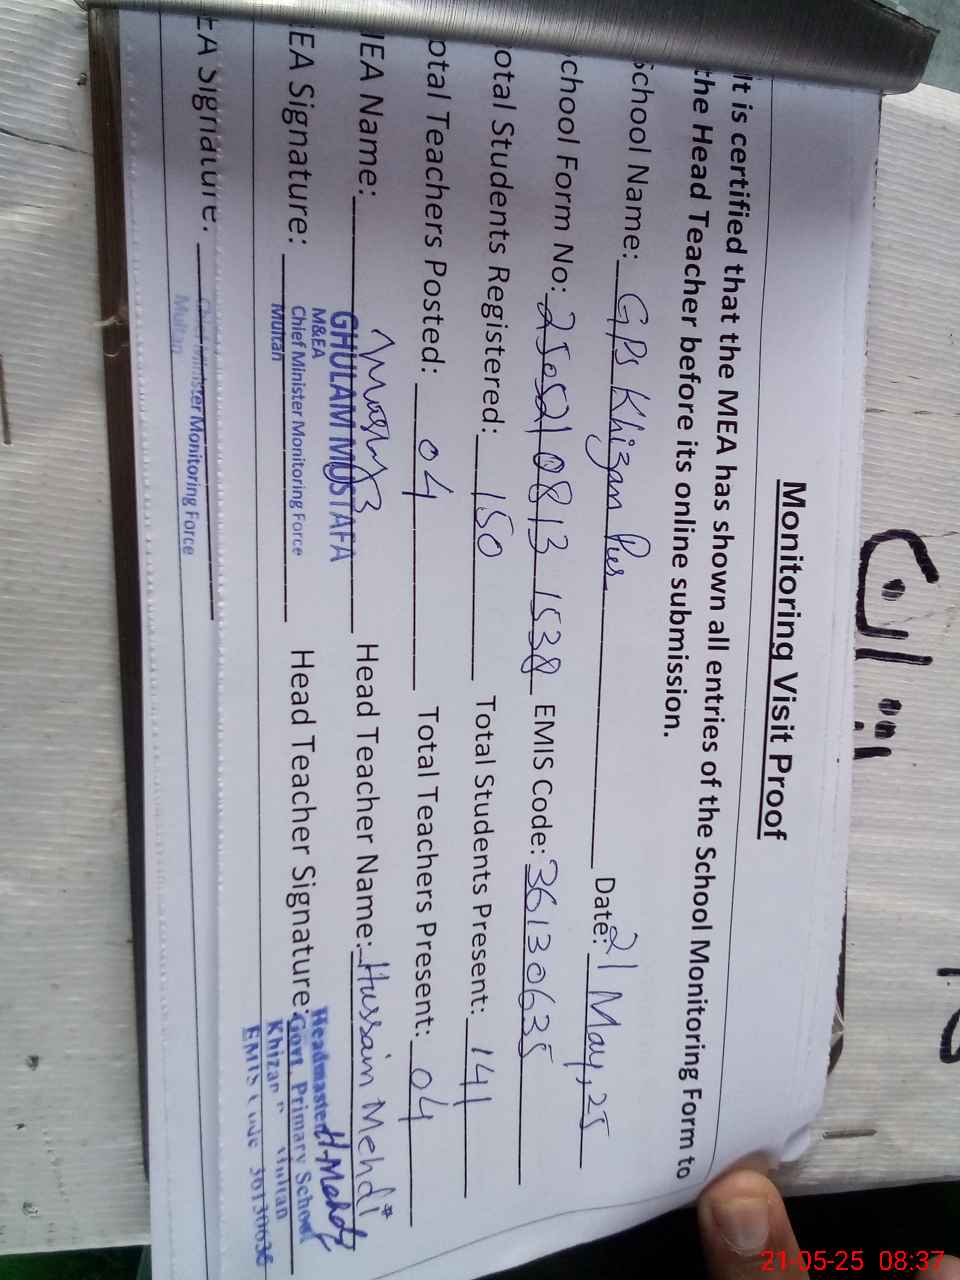 Monitoring Visit Proof
It is certified that the MEA has shown all entries of the School Monitoring Form to
the Head Teacher before its online submission.
School Name: GPS Khizan Pur Date: 21 May, 25
chool Form No: 252108131538 EMIS Code: 36130635
otal Students Registered: 150 Total Students Present: 141
otal Teachers Posted: 04 Total Teachers Present: 04
IEA Name: GHULAM MUSTAFA Head Teacher Name: Hussain Mehdi
M&EA
Chief Minister Monitoring Force
Multan
IEA Signature: Head Teacher Signature: H.Mehdi
Headmaster
Govt. Primary School
Khizan Multan
EMIS Code 36130635
EA Signature:
Chief Minister Monitoring Force
Multan
21-05-25 08:37